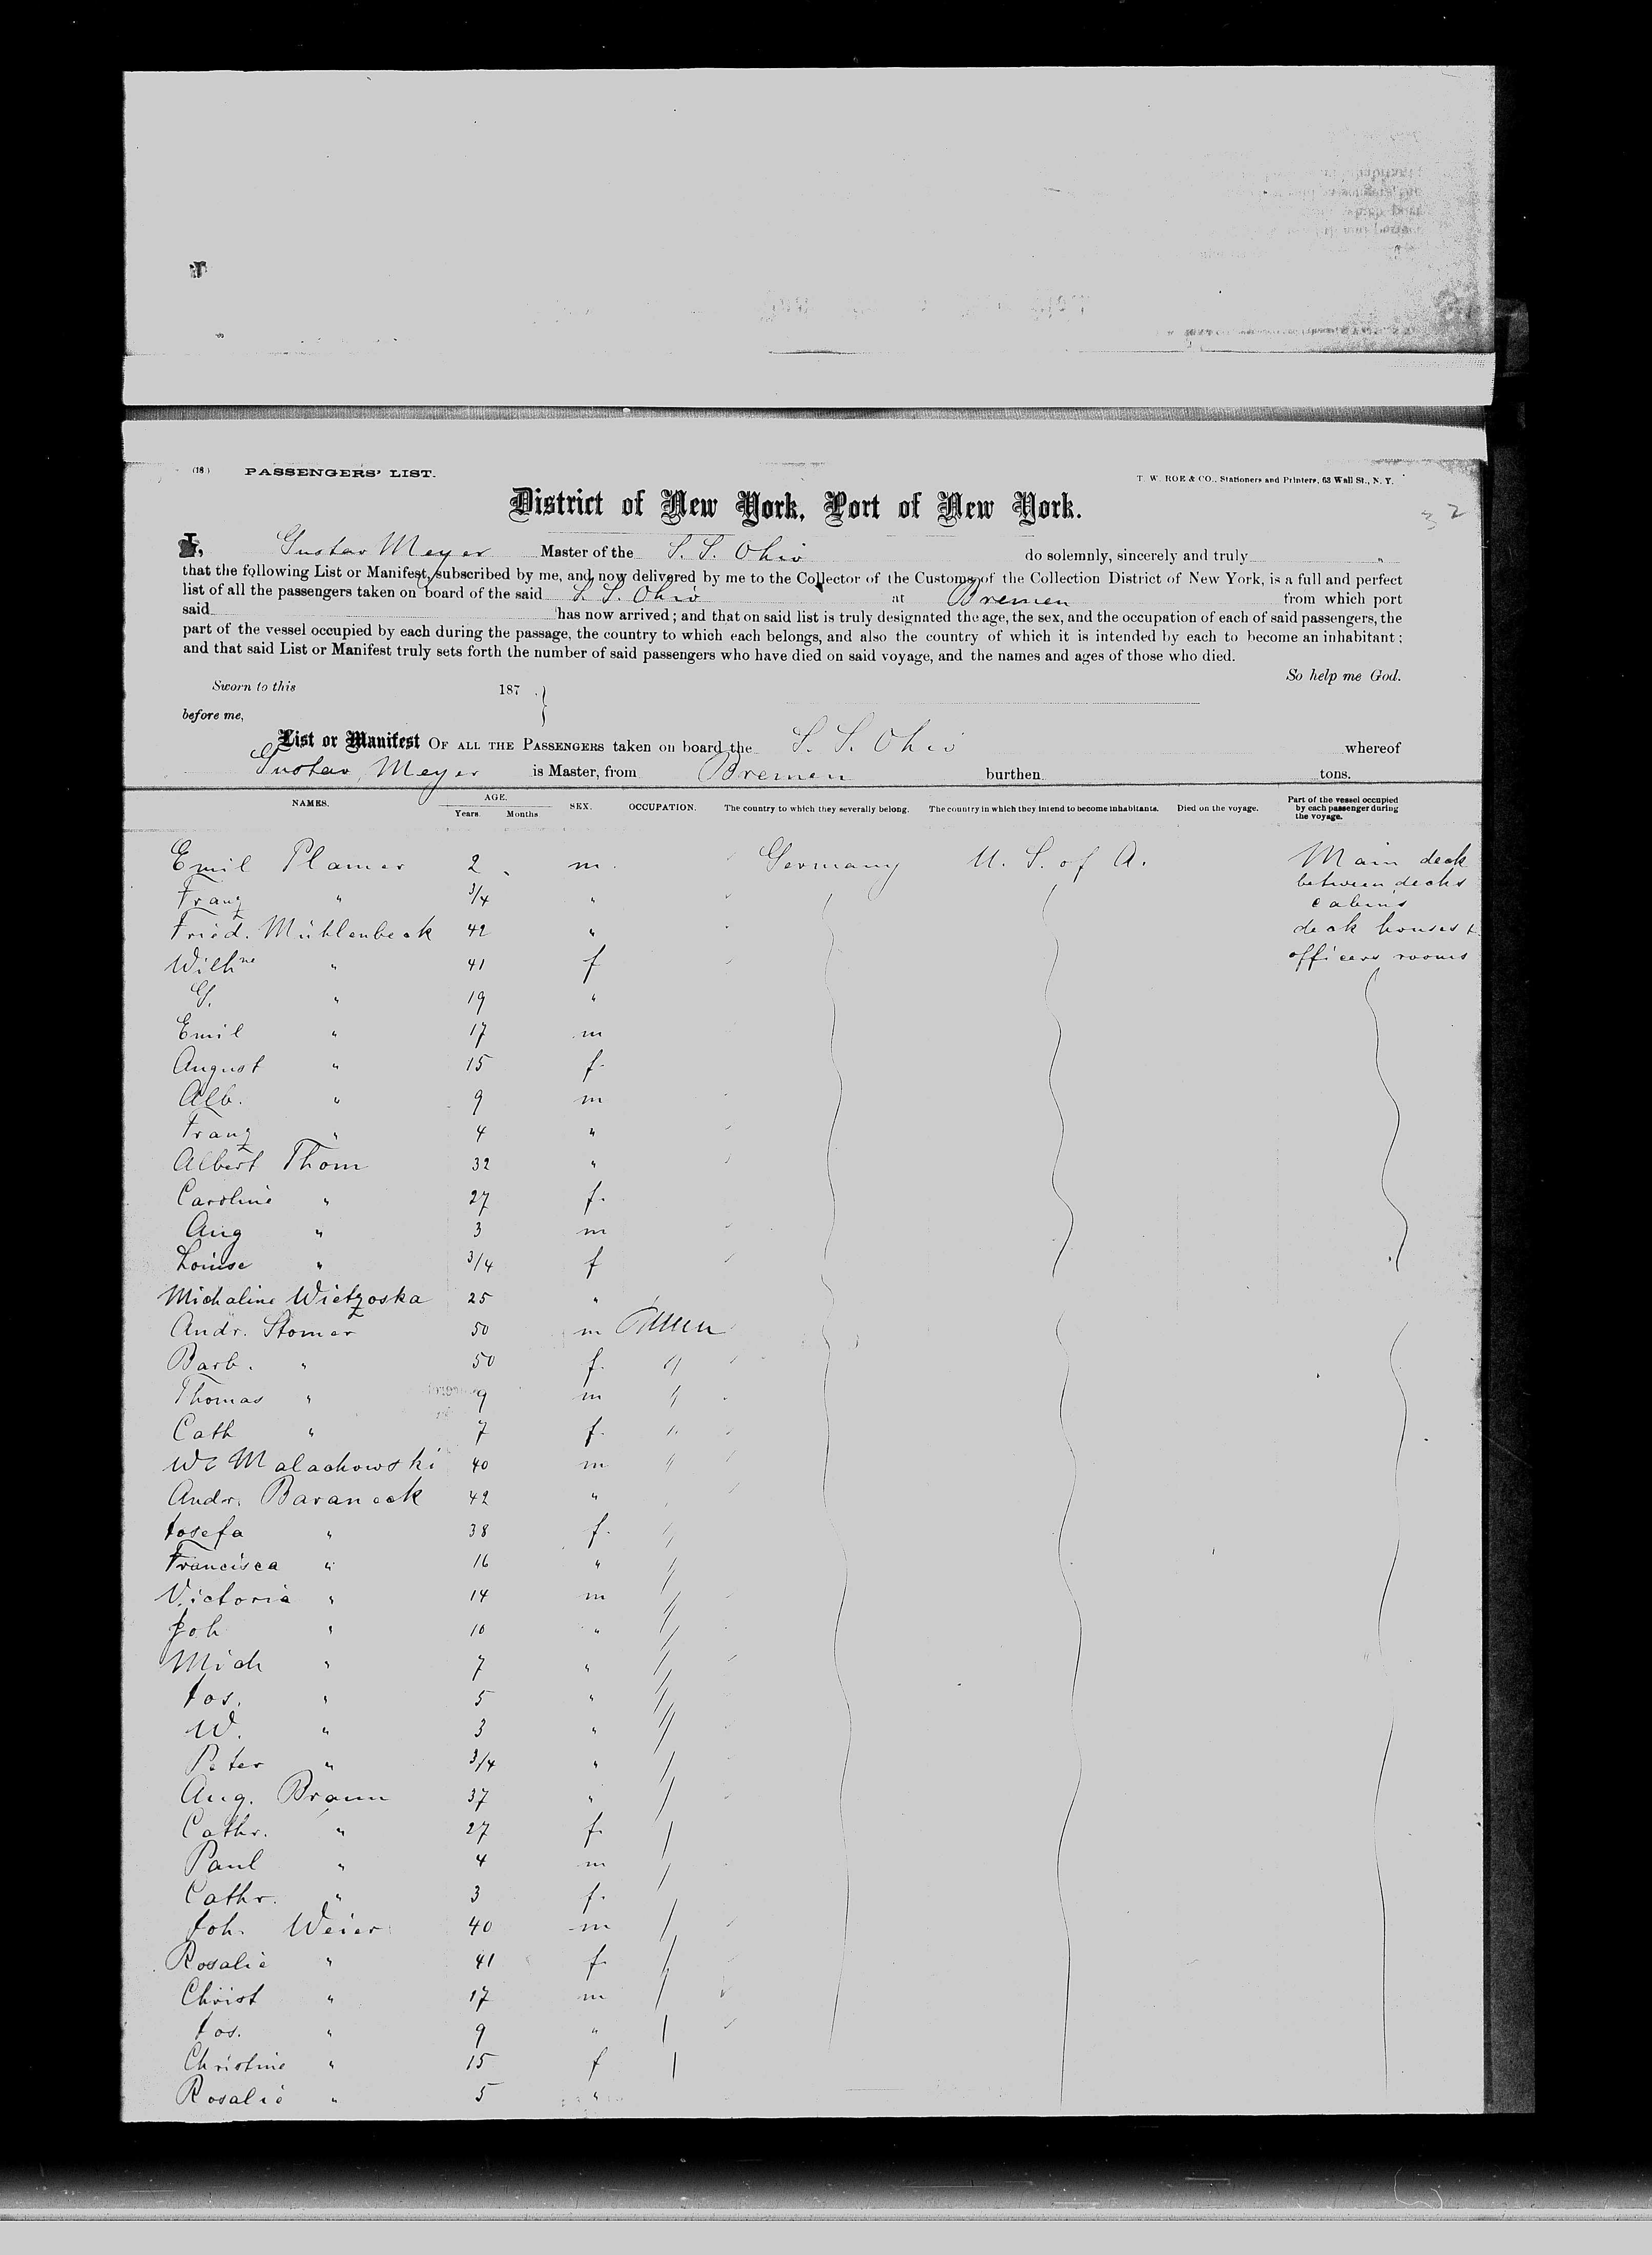 (18) PASSENGERS' LIST. T. W. ROE & CO., Stationers and Printers, 63 Wall St., N. Y.
District of New York, Port of New York.
32
I, Gustav Meyer Master of the S. S. Ohio do solemnly, sincerely and truly
that the following List or Manifest, subscribed by me, and now delivered by me to the Collector of the Customs of the Collection District of New York, is a full and perfect
list of all the passengers taken on board of the said S. S. Ohio at Bremen from which port
said has now arrived; and that on said list is truly designated the age, the sex, and the occupation of each of said passengers, the
part of the vessel occupied by each during the passage, the country to which each belongs, and also the country of which it is intended by each to become an inhabitant;
and that said List or Manifest truly sets forth the number of said passengers who have died on said voyage, and the names and ages of those who died.
So help me God.
Sworn to this 187
before me,
List or Manifest OF ALL THE PASSENGERS taken on board the S. S. Ohio whereof
Gustav Meyer is Master, from Bremen burthen tons.
NAMES. AGE. Years Months SEX. OCCUPATION. The country to which they severally belong. The country in which they intend to become inhabitants. Died on the voyage. Part of the vessel occupied by each passenger during the voyage.
Emil Plamer 2 m. Germany U. S. of A. Main deck
Franz " 3/4 " between decks cabins
Fried. Mühlenbeck 42 " deck houses &
Wilhne " 41 f officers rooms
G. " 19 "
Emil " 17 m
August " 15 f.
Alb. " 9 m
Franz " 4 "
Albert Thom 32 "
Caroline " 27 f.
Aug " 3 m
Louise " 3/4 f
Michaline Wietzoska 25 "
Andr. Stomer 50 m
Barb. " 50 f. "
Thomas " 9 m "
Cath " 7 f. "
Wc Malachowski 40 m "
Andr. Baraneck 42 "
Josefa " 38 f. "
Francisca " 16 " "
Victoria " 14 m "
Joh " 10 " "
Mich " 7 " "
Jos. " 5 " "
W. " 3 " "
Peter " 3/4 "
Aug. Braun 37 "
Cathr. " 27 f.
Paul " 4 m
Cathr. " 3 f.
Joh. Weier 40 m
Rosalie " 41 f.
Christ " 17 m
Jos. " 9 "
Christine " 15 f
Rosalie " 5 "